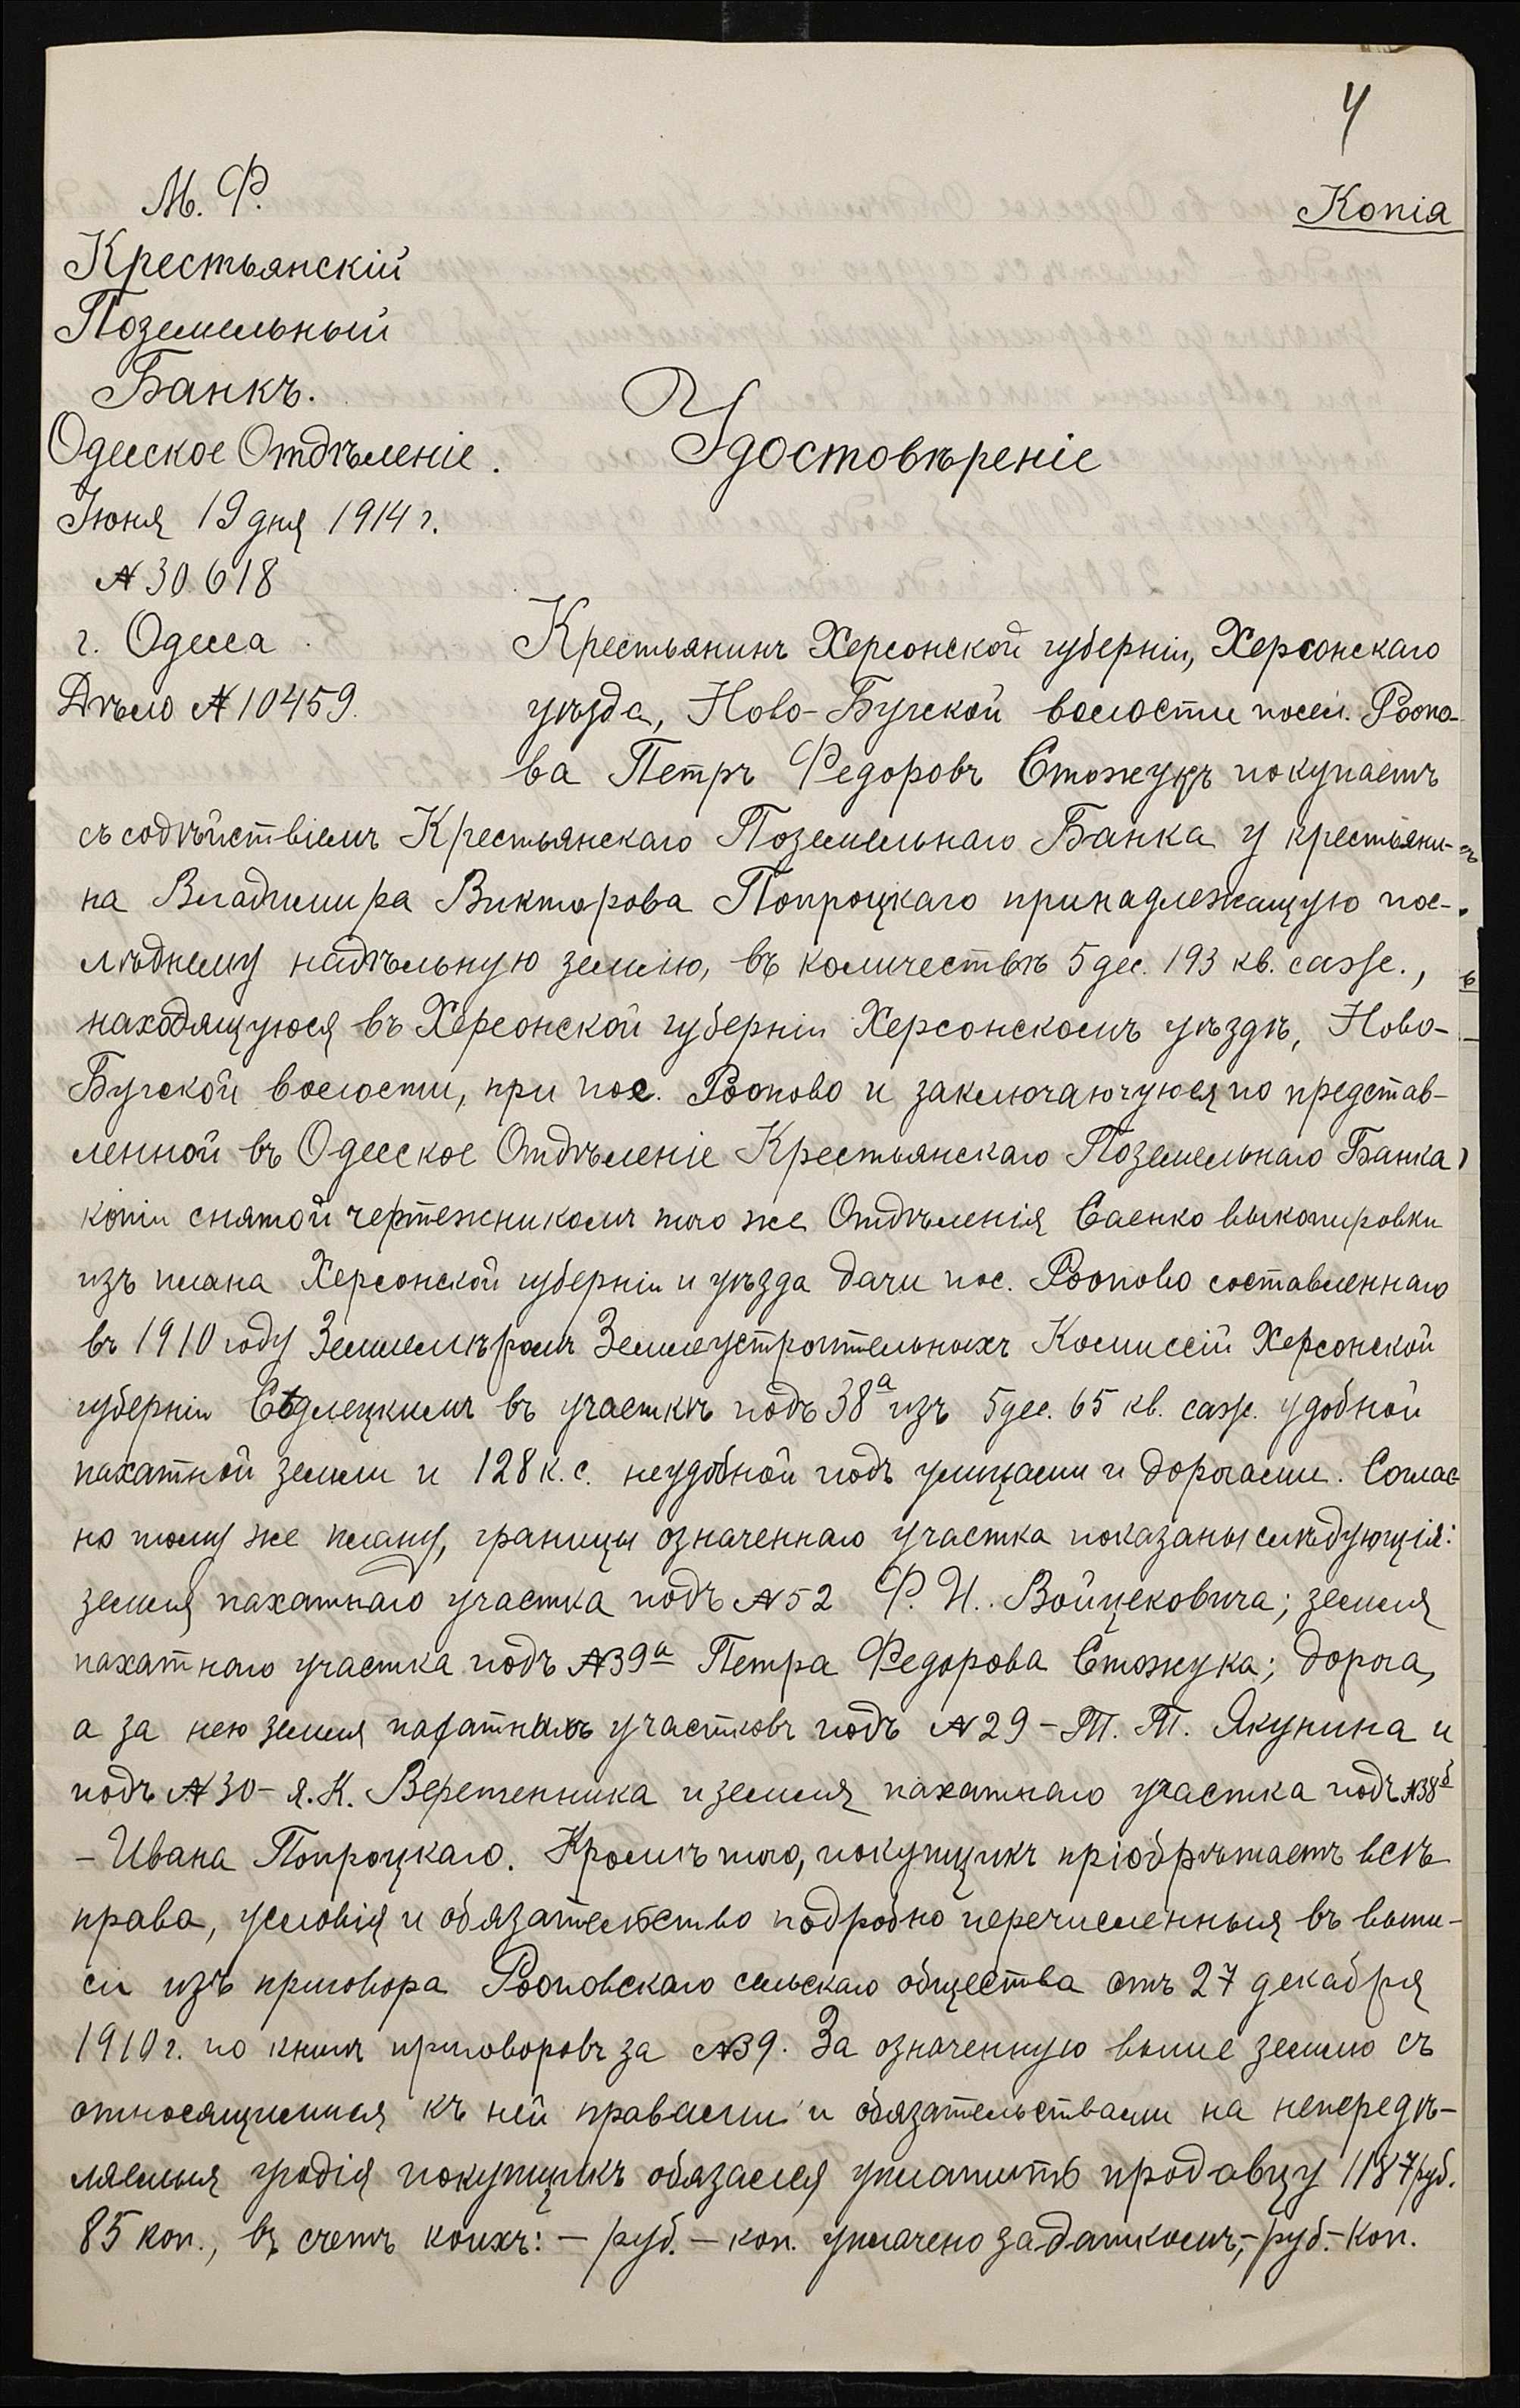 4
М. Ф.
Копія
Крестьянскій
Поземельный
Банкъ.
Одесское Отдѣленіе.
Удостовѣреніе
Іюня 19 дня 1914 г.
№ 30618
г. Одесса
Дѣло № 10459.
Крестьянинъ Херсонской губерніи, Херсонскаго
уѣзда, Ново-Бугской волости посел. Розно-
ва Петръ Федоровъ Стожукъ покупаетъ
съ содѣйствіемъ Крестьянскаго Поземельнаго Банка у крестьяни-
на Владимира Викторова Попроцкаго принадлежащую пос-
лѣднему надѣльную землю, въ количествѣ 5 дес. 193 кв. саж.,
находящуюся въ Херсонской губерніи Херсонскомъ уѣздѣ, Ново-
Бугской волости, при пос. и заключаючуюся по представ-
ленной въ Одесское Отдѣленіе Крестьянскаго Поземельнаго Банка
копіи снятой чертежникомъ того же Отдѣленія Саенко выкопировки
изъ плана Херсонской губерніи и уѣзда дачи пос. составленнаго
въ 1910 году Землемѣромъ Землеустроительныхъ Комиссій Херсонской
губерніи Сѣдлецкимъ въ участкѣ подъ 38а изъ 5 дес. 65 кв. саж. удобной
пахатной земли и 128 к. с. неудобной подъ улицами и дорогами. Соглас-
но тому же плану, границы означеннаго участка показаны слѣдующія:
земля пахатнаго участка подъ № 52 Ф. И. Войцековича; земля
пахатнаго участка подъ № 39а Петра Федорова Стожука; дорога,
а за нею земля пахатныхъ участковъ подъ № 29 - Т. Т. Якунина и
подъ № 30 - Я. К. Веретенника и земля пахатнаго участка подъ № 38б
- Ивана Попроцкаго. Кромѣ того, покупщикъ пріобрѣтаетъ всѣ
права, условія и обязательство подробно перечисленныя въ выпи-
си изъ приговора сельскаго общества отъ 27 декабря
1910 г. по книгѣ приговоровъ за № 39. За означенную выше землю съ
относящимися къ ней правами и обязательствами на непередѣ-
ляемыя угодія покупщикъ обязался уплатить продавцу 1187 руб.
85 коп., въ счетъ коихъ: - руб. - коп. уплачено задаткомъ, - руб. - коп.